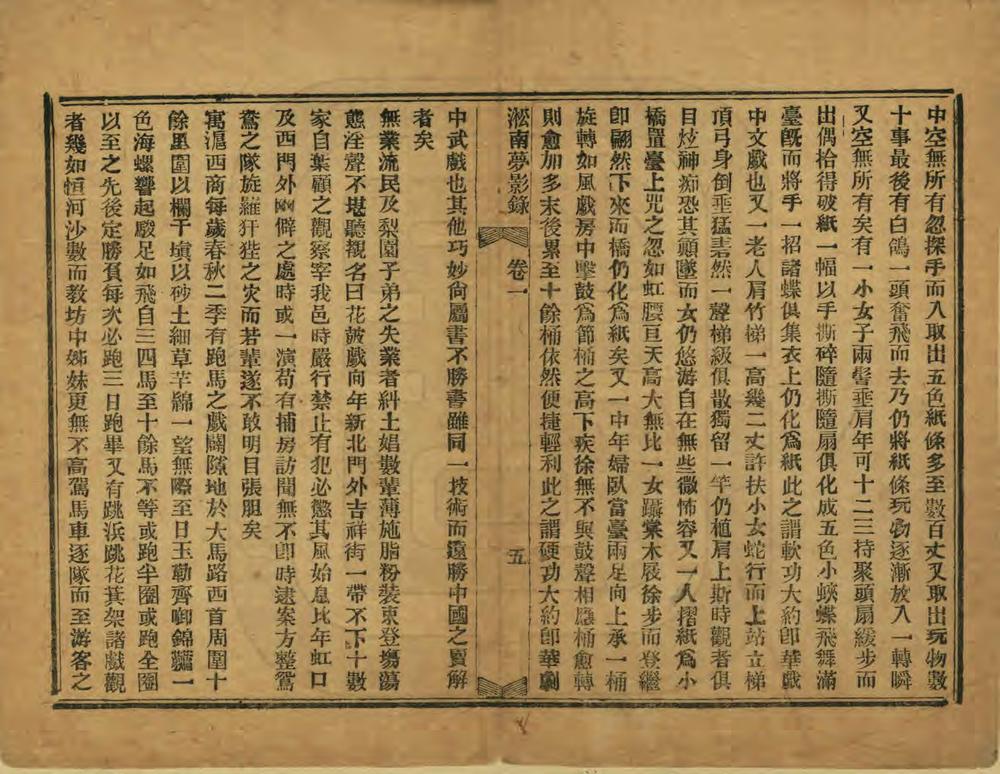 中空無所有忽探手而入取出五色紙條多至數百丈又取出玩物數
十事最後有白鴿一頭奮飛而去乃仍將紙條玩物逐漸放入一轉瞬
又空無所有矣有一小女子兩髻垂肩年可十二三持聚頭扇緩步而
出偶拾得破紙一幅以手撕碎隨撕隨扇俱化成五色小蛺蝶飛舞滿
臺旣而將手一招諸蝶俱集衣上仍化爲紙此之謂軟功大約卽華戲
中文戲也又一老人肩竹梯一高幾二丈許扶小女蛇行而上站立梯
頂弓身倒垂猛砉然一聲梯級俱散獨留一竿仍植肩上斯時觀者俱
目炫神痴恐其顚墜而女仍悠游自在無些微怖容又一人摺紙爲小
橋置臺上咒之忽如虹腰亘天高大無比一女躡棠木屐徐步而登繼
卽翩然下來而橋仍化爲紙矣又一中年婦臥當臺兩足向上承一桶
旋轉如風戲房中擊鼓爲節桶之高下疾徐無不與鼓聲相應桶愈轉
則愈加多末後累至十餘桶依然便捷輕利此之謂硬功大約卽華劇
淞南夢影錄 卷一 五
中武戲也其他巧妙尙屬書不勝書雖同一技術而遠勝中國之賣解
者矣
無業流民及梨園子弟之失業者糾土娼數輩薄施脂粉裝束登塲蕩
態淫聲不堪聽覩名曰花皷戲向年新北門外吉祥街一帶不下十數
家自葉顧之觀察宰我邑時嚴行禁止有犯必懲其風始息比年虹口
及西門外幽僻之處時或一演苟有捕房訪聞無不卽時逮案方整鴛
鴦之隊旋羅犴狴之灾而若輩遂不敢明目張胆矣
寓滬西商每歲春秋二季有跑馬之戲闢隙地於大馬路西首周圍十
餘里圍以欄干塡以砂土細草芊綿一望無際至日玉勒齊啣錦韉一
色海螺響起駿足如飛自三四馬至十餘馬不等或跑半圈或跑全圈
以至之先後定勝負每次必跑三日跑畢又有跳浜跳花箕架諸戲觀
者幾如恒河沙數而敎坊中姊妹更無不高駕馬車逐隊而至游客之